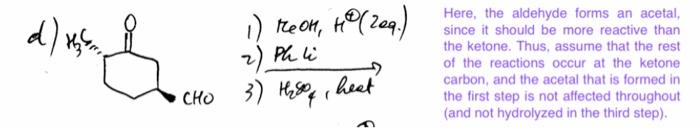 d) H₃C
O
CHO
1) MeOH, H⊕ (2eq.)
2) Ph Li
3) H₂SO₄, heat
Here, the aldehyde forms an acetal,
since it should be more reactive than
the ketone. Thus, assume that the rest
of the reactions occur at the ketone
carbon, and the acetal that is formed in
the first step is not affected throughout
(and not hydrolyzed in the third step).